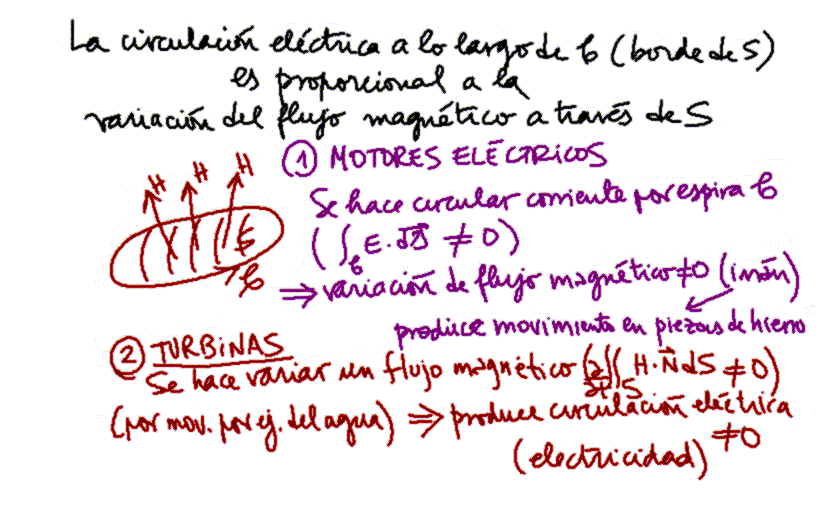 La circulación eléctrica a lo largo de C (borde de S)
es proporcional a la
variación del flujo magnético a través de S
① MOTORES ELÉCTRICOS
H H H
Se hace circular corriente por espira C
S
(∫_C E·dS ≠ 0)
C
⟹ variación de flujo magnético ≠ 0 (imán)
produce movimiento en piezas de hierro
② TURBINAS
Se hace variar un flujo magnético (∂/∂t ∬_S H·N⃗ dS ≠ 0)
(por mov. por ej. del agua) ⟹ produce circulación eléctrica
≠ 0
(electricidad)